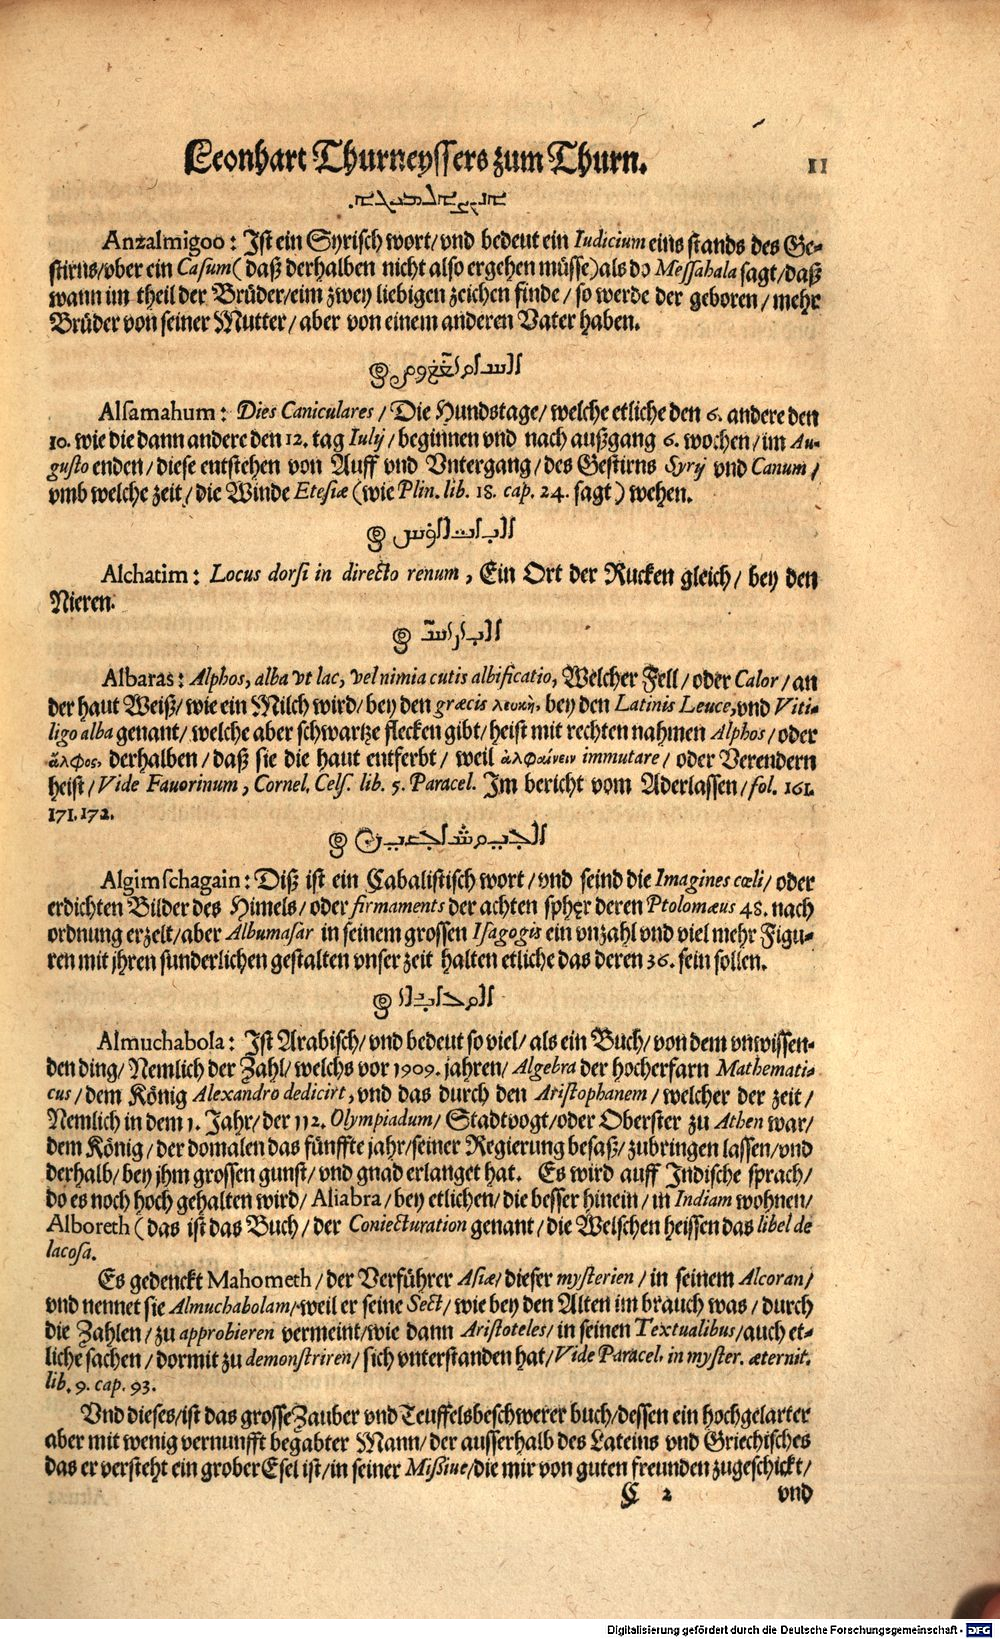 Leonhart Thurneyssers zum Thurn. 11
Anzalmigoo: Jst ein Syrisch wort/vnd bedeut ein Iudicium eins stands des Ge-
stirns/vber ein Casum (daß derhalben nicht also ergehen müsse) als dz Messahala sagt/daß
wann im theil der Brüder/eim zwey liebigen zeichen finde/so werde der geboren/mehr
Brüder von seiner Mutter/aber von einem anderen Vater haben.
Alsamahum: Dies Caniculares/Die Hundstage/welche etliche den 6. andere den
10. wie die dann andere den 12. tag Iulij/beginnen vnd nach außgang 6. wochen/im Au-
gusto enden/diese entstehen von Auff vnd Vntergang/des Gestirns Syrij vnd Canum/
vmb welche zeit/die Winde Etesiæ (wie Plin. lib. 18. cap. 24. sagt) wehen.
Alchatim: Locus dorsi in directo renum, Ein Ort der Rucken gleich/bey den
Nieren.
Albaras: Alphos, alba vt lac, vel nimia cutis albificatio, Welcher Fell/oder Calor/an
der haut Weiß/wie ein Milch wird/bey den græcis λευκὴ, bey den Latinis Leuce, vnd Viti-
ligo alba genant/welche aber schwartze flecken gibt/heist mit rechten nahmen Alphos/oder
ἄλφος, derhalben/daß sie die haut entferbt/weil ἀλφαίνειν immutare/oder Verendern
heist/Vide Fauorinum, Cornel. Cels. lib. 5. Paracel. Jm bericht vom Aderlassen/fol. 161.
171. 172.
Algimschagain: Diß ist ein Cabalistisch wort/vnd seind die Imagines cœli/oder
erdichten Bilder des Himels/oder firmaments der achten sphęr deren Ptolomæus 48. nach
ordnung erzelt/aber Albumasar in seinem grossen Isagogis ein vnzahl vnd viel mehr Figu-
ren mit jhren sunderlichen gestalten vnser zeit halten etliche das deren 36. sein sollen.
Almuchabola: Jst Arabisch/vnd bedeut so viel/als ein Buch/von dem vnwissen-
den ding/Nemlich der Zahl/welchs vor 1909. jahren/Algebra der hocherfarn Mathemati-
cus/dem König Alexandro dedicirt, vnd das durch den Aristophanem/welcher der zeit/
Nemlich in dem 1. Jahr/der 112. Olympiadum/Stadtvogt/oder Oberster zu Athen war/
dem König/der domalen das fünffte jahr/seiner Regierung besaß/zubringen lassen/vnd
derhalb/bey jhm grossen gunst/vnd gnad erlanget hat. Es wird auff Jndische sprach/
do es noch hoch gehalten wird/Aliabra/bey etlichen/die besser hinein/in Indiam wohnen/
Alboreth (das ist das Buch/der Coniecturation genant/die Welschen heissen das libel de
lacosa.
Es gedenckt Mahometh/der Verführer Asiæ/dieser mysterien/in seinem Alcoran/
vnd nennet sie Almuchabolam/weil er seine Sect/wie bey den Alten im brauch was/durch
die Zahlen/zu approbieren vermeint/wie dann Aristoteles/in seinen Textualibus/auch et-
liche sachen/dormit zu demonstriren/sich vnterstanden hat/Vide Paracel. in myster. æternit.
lib. 9. cap. 93.
Vnd dieses/ist das grosse Zauber vnd Teuffelsbeschwerer buch/dessen ein hochgelarter
aber mit wenig vernunfft begabter Mann/der ausserhalb des Lateins vnd Griechisches
das er versteht ein grober Esel ist/in seiner Missiue/die mir von guten freunden zugeschickt/
C 2 vnd
Digitalisierung gefördert durch die Deutsche Forschungsgemeinschaft - DFG